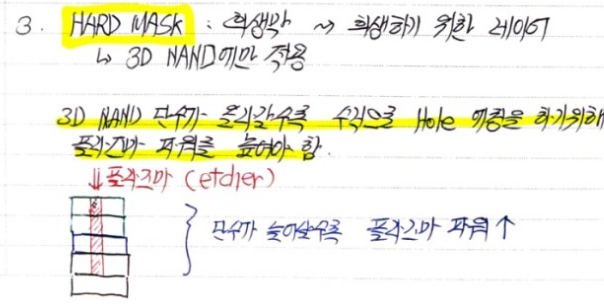 3. HARD MASK : 희생막 ~> 희생하기 위한 레이어
↳ 3D NAND에만 적용
3D NAND 단수가 올라갈수록 수직으로 Hole 에칭을 하기위해
플라즈마 파워를 높여야 함.
↓ 플라즈마 (etcher)
단수가 높아질수록 플라즈마 파워 ↑